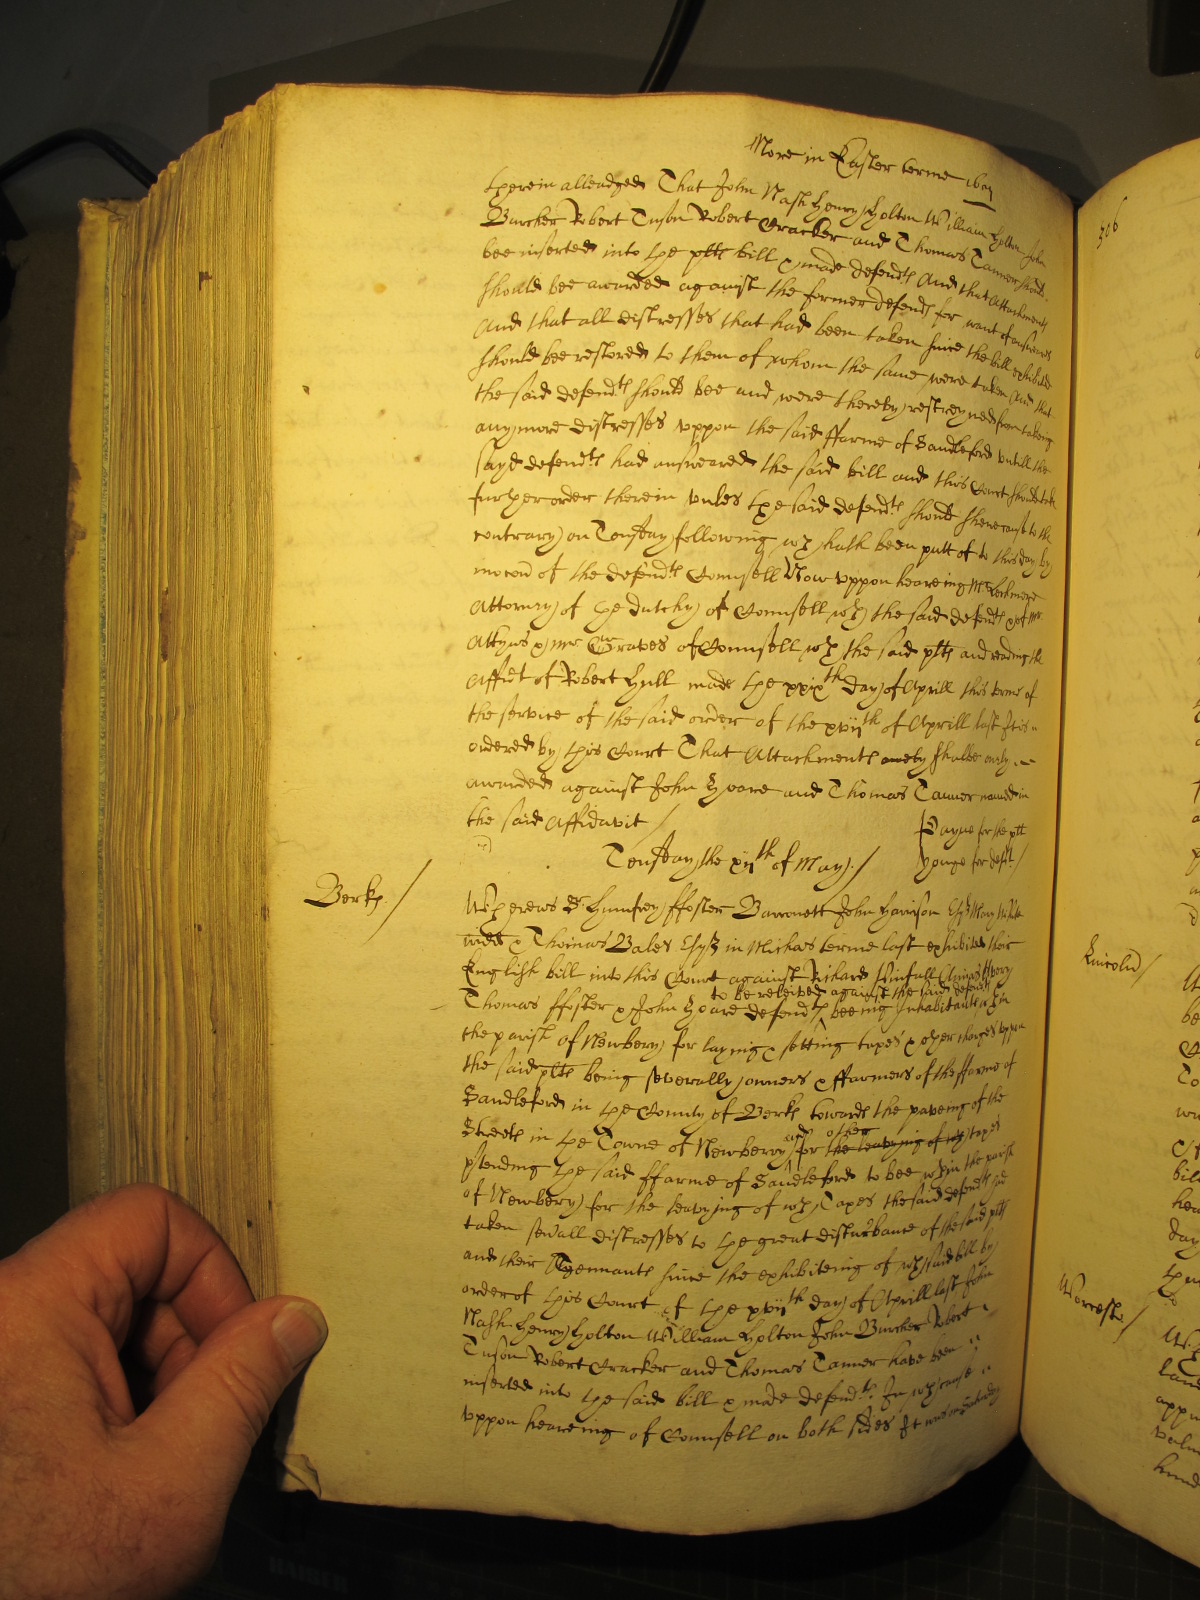 More in Easter terme
therein alleadged That John Nash Henry Holton William Holton John
Buncker Robert Tuson Robert Cracker and Thomas Tanner should
bee inserted into the plts bill & made defendts And that Attachments
should bee awarded against the former defends for want of answeare
And that all distresses that had been taken since the bill exhibited
should bee restored to them of whom the same were taken And that
the said defendts should bee and were thereby restreyned from takeing
any more distresses uppon the said ffarme of Sandleford untill the
sayd defendts had answeared the said bill and this Court should take
further order therein unles the said defendts should shewe cause to the
contrary on Tensday following wch hath been putt of to this day by
mocon of the defendts Counsell Now uppon heareing Mr Lechmere
Attorney of the dutchy of Counsell wth the said defendts & of Mr
Attkyns & Mr Graves of Counsell wth the said plts and reading the
Affidt of Robert Hull made the xxixth day of Aprill this terme of
the service of the said order of the xviith of Aprill last It is
ordered by this Court That Attachments shalbe only
awarded against John Hoare and Thomas Tanner named in
the said Affidavit /
Payne for the plt
Tensday the xiith of May /
Yonge for deft /
Berks /
Whereas Sr Humfrey ffoster Barronett John Harrison Esqr Mary
widd & Thomas Bales Esqr in Michas terme last exhibited their
English bill into this Court against Richard Avery
to be releived against the said defendts
Thomas ffoster & John Hoare defendts beeing Inhabitants wthin
the parish of Newbery for laying & setting taxes & other charges uppon
the said plts being severally owners & ffarmers of the ffarme of
Sandleford in the County of Berks towards the paveing of the
and other
Streets in the Towne of Newberry for the leavying of wch taxes
ptending the said ffarme of Sandleford to bee wthin the parish
of Newbery for the leavying of wch Taxes the said defendts had
taken sev'all distresses to the great disturbance of the said plts
and their Tennants since the exhibiteing of wch said bill by
order of this Court of the xviith day of Aprill last John
Nash Henry Holton William Holton John Buncker Robert
Tuson Robert Cracker and Thomas Tanner have been
inserted into the said bill & made defendts In wch cause
uppon heareing of Counsell on both sides It was on Saturday
306
Lincoln /
Worcester /